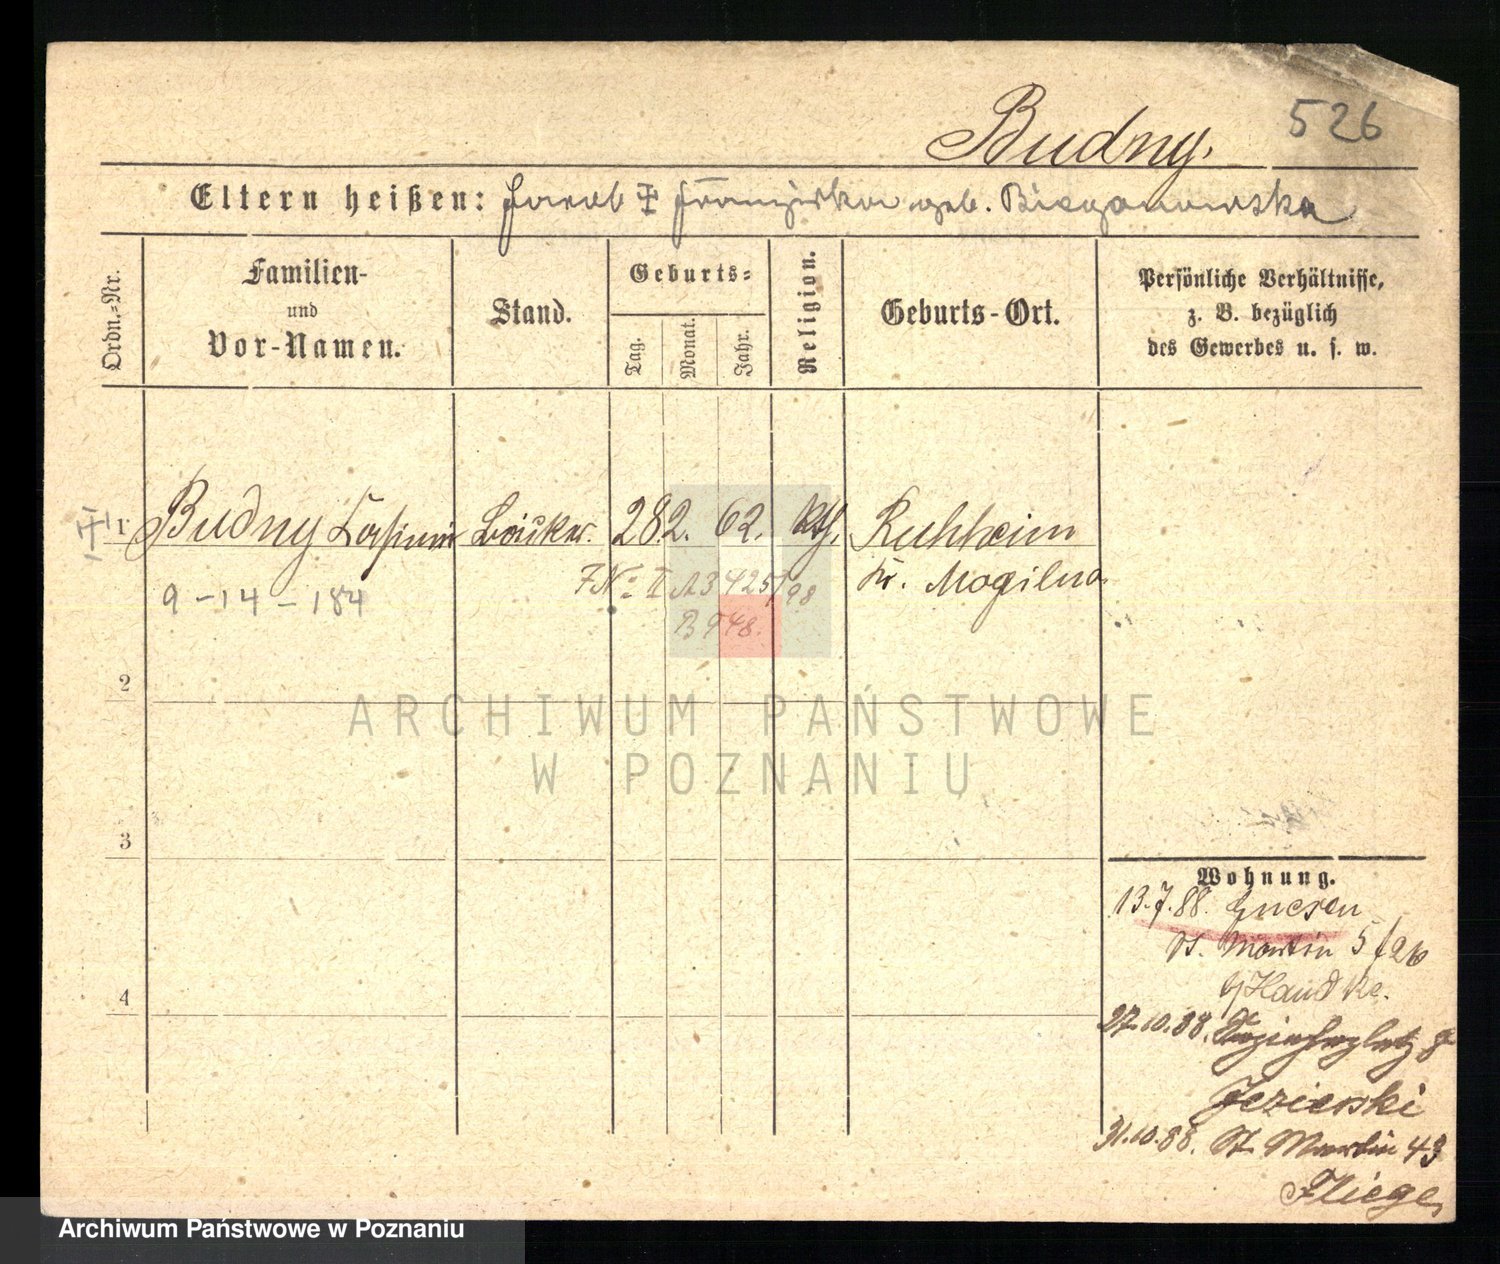 526
Budny.
Eltern heißen: Jacob ‡ Franziska geb. Bieganowska
Ordn.-Nr.
Familien-
und
Vor-Namen.
Stand.
Geburts-
Tag.
Monat.
Jahr.
Religion.
Geburts-Ort.
Persönliche Verhältnisse,
z. B. bezüglich
des Gewerbes u. s. w.
1 Budny Casimir Bäcker. 28 2. 62. kth. Ruhheim
Kr. Mogilno
9-14-184
B 948.
2
3
4
ARCHIWUM PAŃSTWOWE
W POZNANIU
Wohnung.
13.7.88. Gnesen
St. Martin 5/26
b/Handke.
27.10.88. 8
Jezierski
31.10.88. St. Martin 43
Fliege.
Archiwum Państwowe w Poznaniu